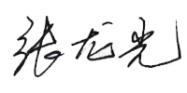 张龙光